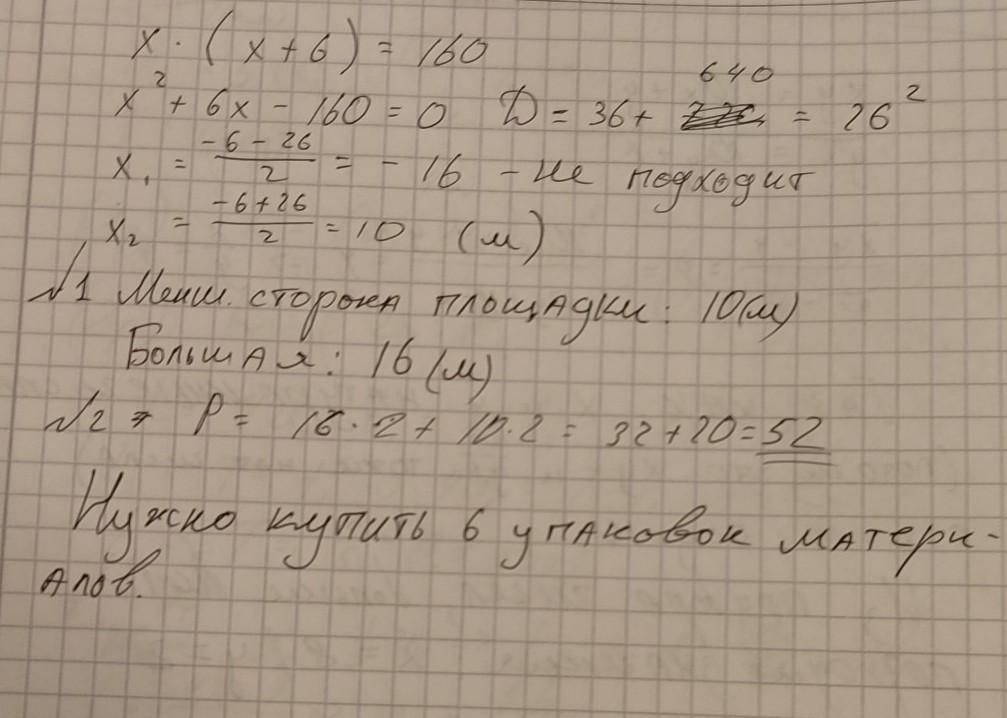 x · (x+6) = 160
x² + 6x - 160 = 0 D = 36 + 640 = 26²
x₁ = (-6-26)/2 = -16 - не подходит
x₂ = (-6+26)/2 = 10 (м)
№1 Менш. сторона площадки: 10(м)
Большая: 16(м)
№2 P = 16·2+10·2 = 32+20=52
Нужно купить 6 упаковок матери-
алов.